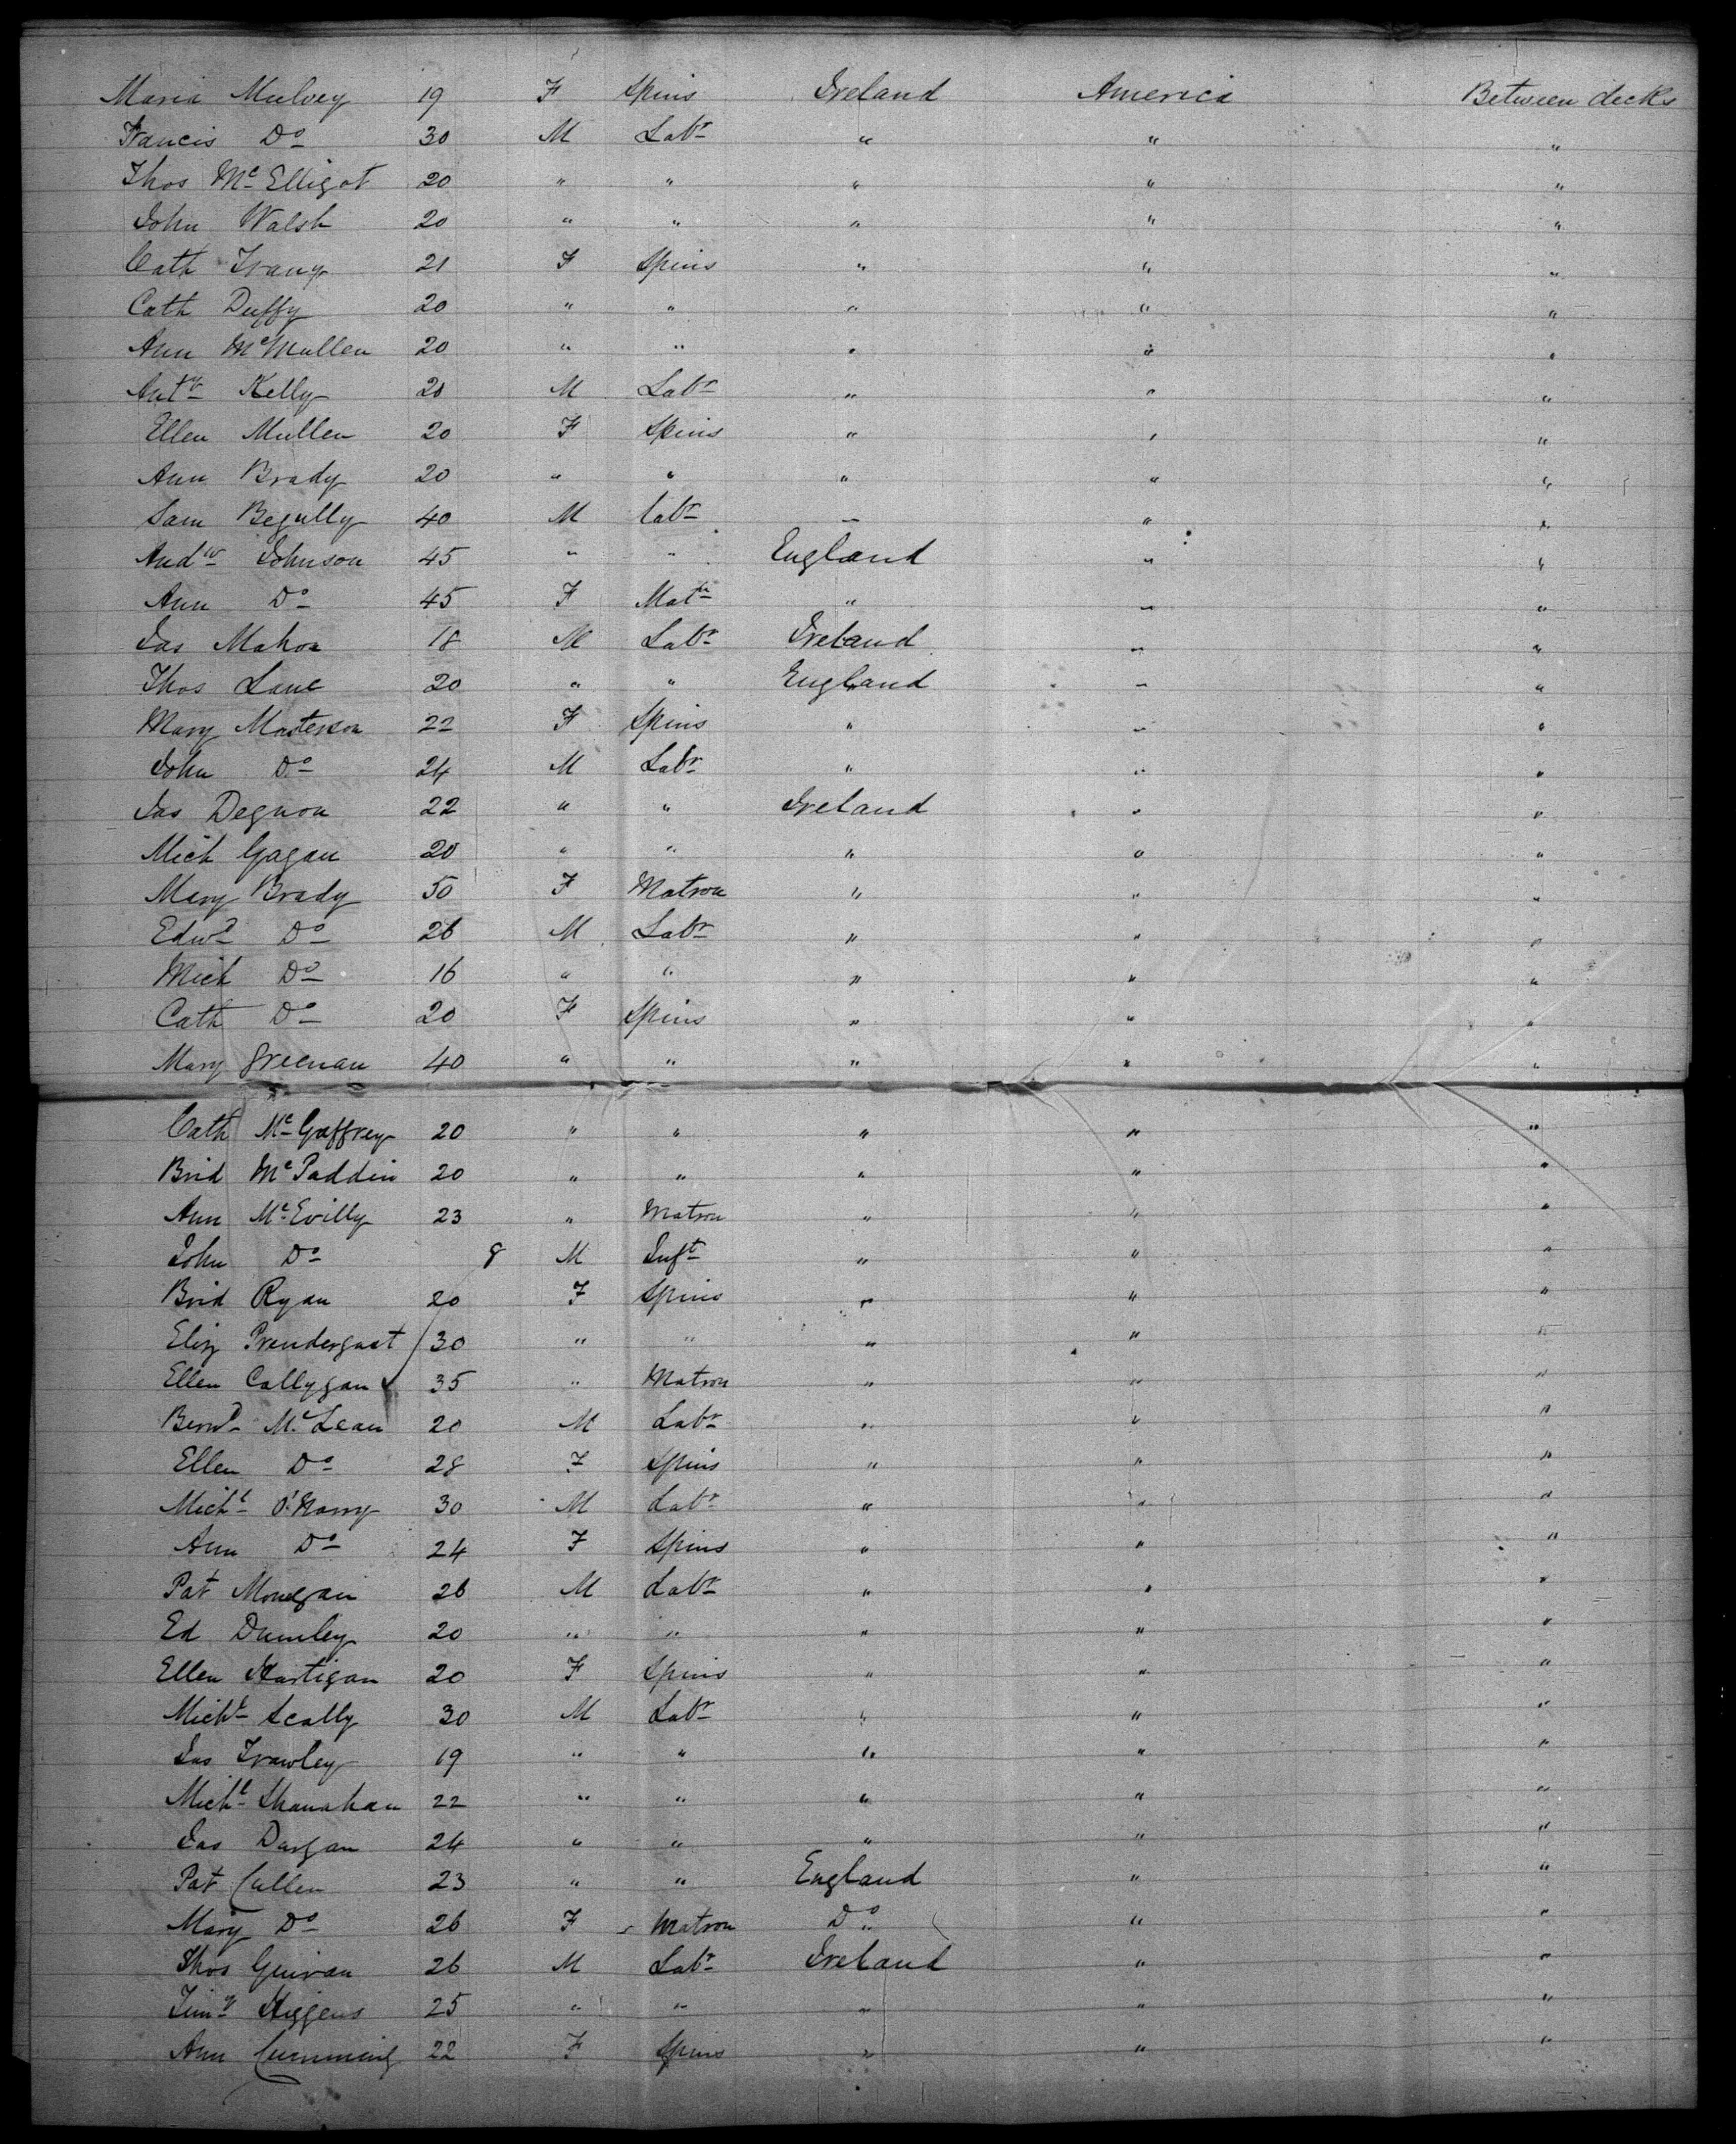 Maria Mulvey 19 F Spins Ireland America Between decks
Francis Do 30 M Labr " " "
Thos McElligot 20 " " " " "
John Walsh 20 " " " " "
Cath 21 F Spins " " "
Cath Duffy 20 " " " " "
Ann McMullen 20 " " " " "
Anty Kelly 20 M Labr " " "
Ellen Mullen 20 F Spins " " "
Ann Brady 20 " " " " "
Sam Begully 40 M Labr " " "
Andw Johnson 45 " " England " "
Ann Do 45 F Matn " " "
Jas Mahon 18 M Labr Ireland " "
Thos Lane 20 " " England " "
Mary Masterson 22 F Spins " " "
John Do 24 M Labr " " "
Jas Degnon 22 " " Ireland " "
Mich Gagan 20 " " " " "
Mary Brady 50 F Matron " " "
Edwd Do 26 M Labr " " "
Mich Do 16 " " " " "
Cath Do 20 F Spins " " "
Mary Greenan 40 " " " " "
Cath McGaffrey 20 " " " " "
Brid McPaddin 20 " " " " "
Ann McEvilly 23 " Matron " " "
John Do 8 M Inft " " "
Brid Ryan 20 F Spins " " "
Eliz Prendergast 30 " " " " "
Ellen Callygan 35 " Matron " " "
Bernd McLean 20 M Labr " " "
Ellen Do 28 F Spins " " "
Michl 30 M Labr " " "
Ann Do 24 F Spins " " "
Pat 26 M Labr " " "
Ed Dumley 20 " " " " "
Ellen Hartigan 20 F Spins " " "
Michl Scally 30 M Labr " " "
Jas Frawley 19 " " " " "
Michl Shanahan 22 " " " " "
Jas Dargan 24 " " " " "
Pat Cullen 23 " " England " "
Mary Do 26 F Matron Do " "
Thos Guivan 26 M Labr Ireland " "
Timy Higgens 25 " " " " "
Ann Cumming 22 F Spins " " "